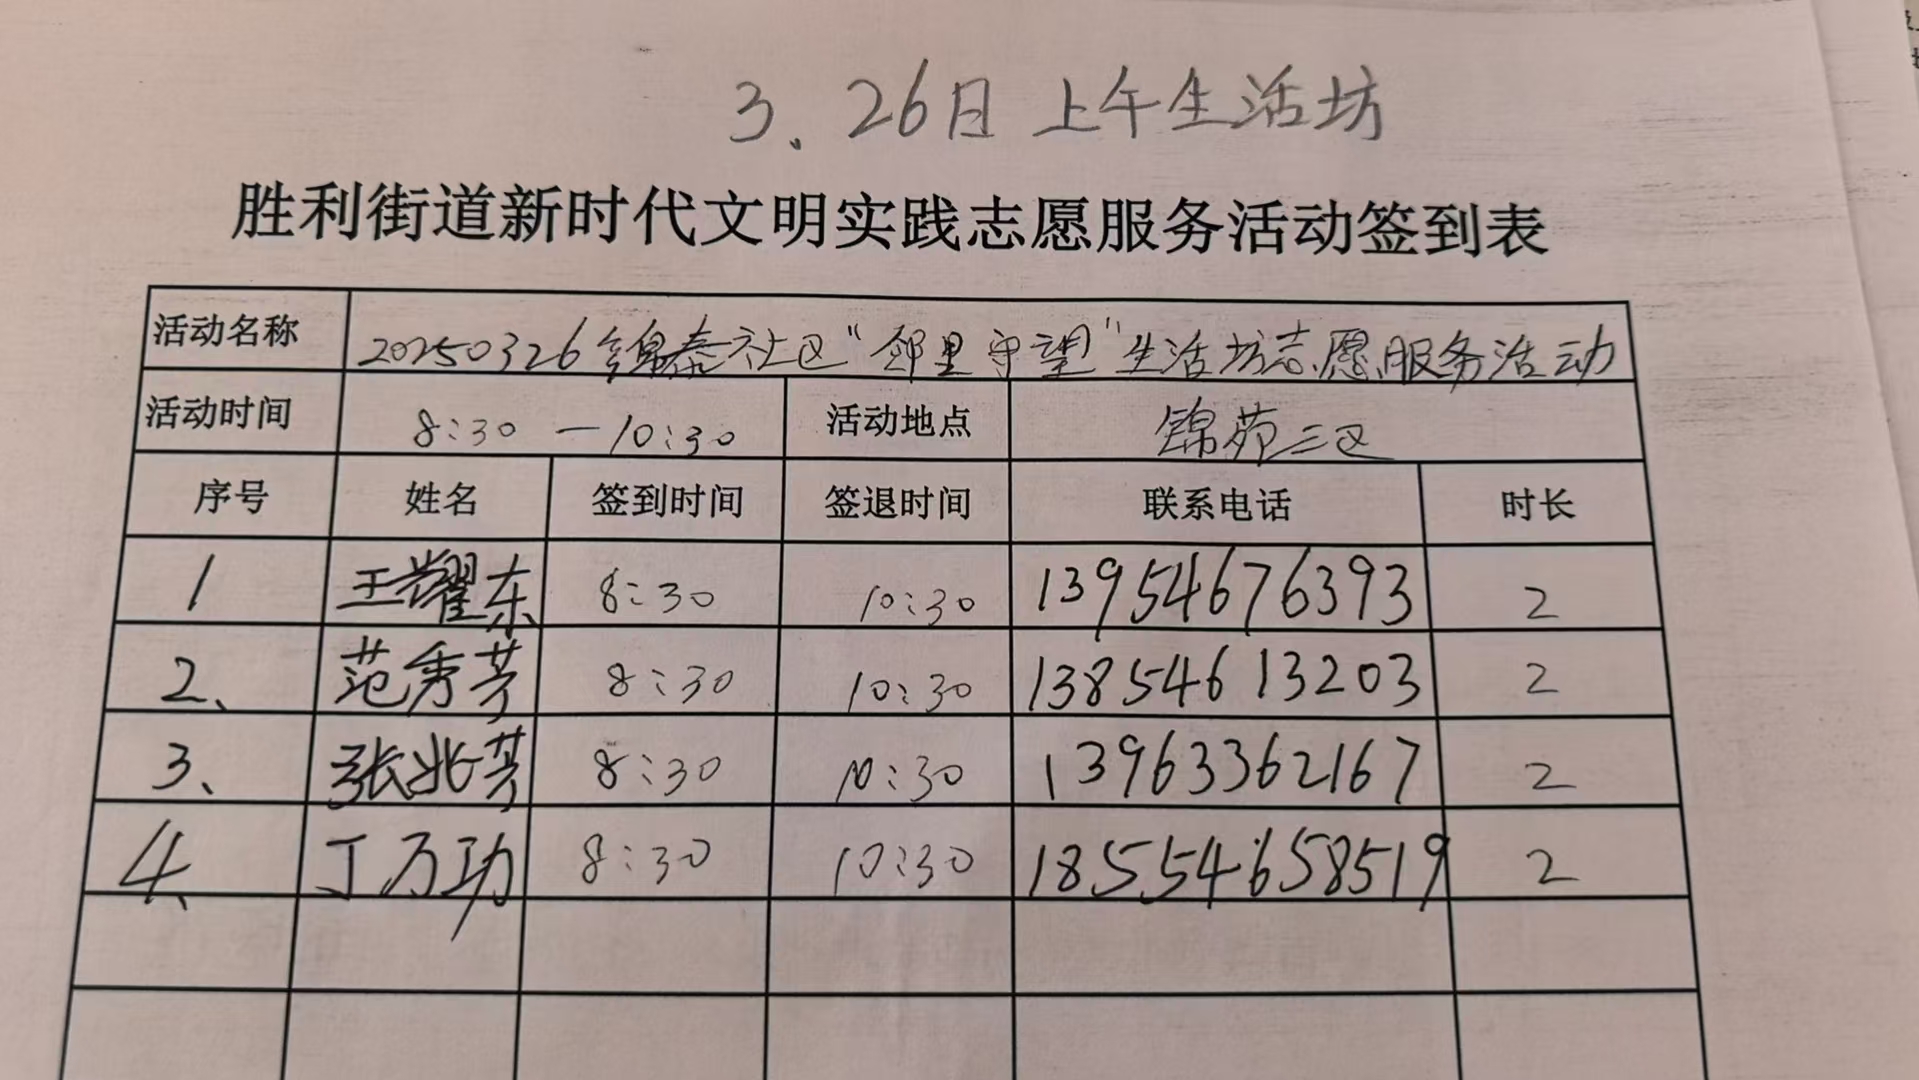 3.26日 上午生活坊
胜利街道新时代文明实践志愿服务活动签到表
活动名称 20250326锦泰社区“邻里守望”生活坊志愿服务活动
活动时间 8:30 — 10:30 活动地点 锦苑三区
序号 姓名 签到时间 签退时间 联系电话 时长
1 王耀东 8:30 10:30 13954676393 2
2、 范秀芳 8:30 10:30 13854613203 2
3、 张兆芳 8:30 10:30 13963362167 2
4、 丁万功 8:30 10:30 18554658519 2